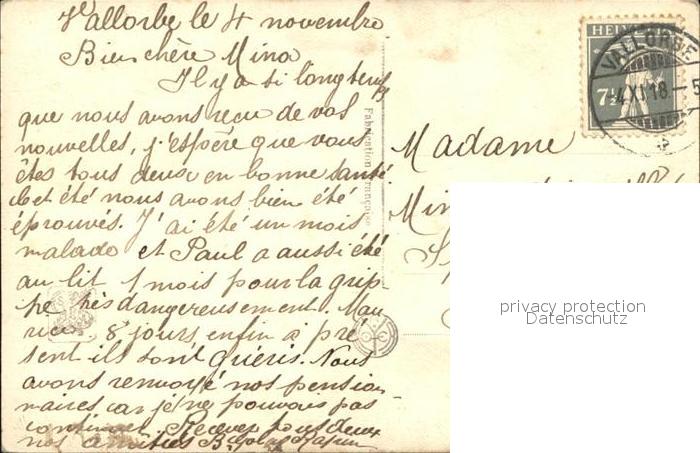 Vallorbe le 4 novembre
Bien chère Mina
Il y a si longtemps
que nous avons reçu de vos
nouvelles, j'espère que vous
êtes tous deux en bonne santé
Cet été nous avons bien été
éprouvés. J'ai été un mois
malade et Paul a aussi été
au lit 1 mois pour la grip-
pe très dangereusement. Mau
rice, 8 jours, enfin à pré
sent ils sont guéris. Nous
avons renvoyé nos pension
naires car je ne pouvais pas
continuer. Recevez tous deux
nos amitiés
Fabrication Française
HELVETIA
7½
VALLORBE
-4 XI 18 - 5
Madame
privacy protection
Datenschutz